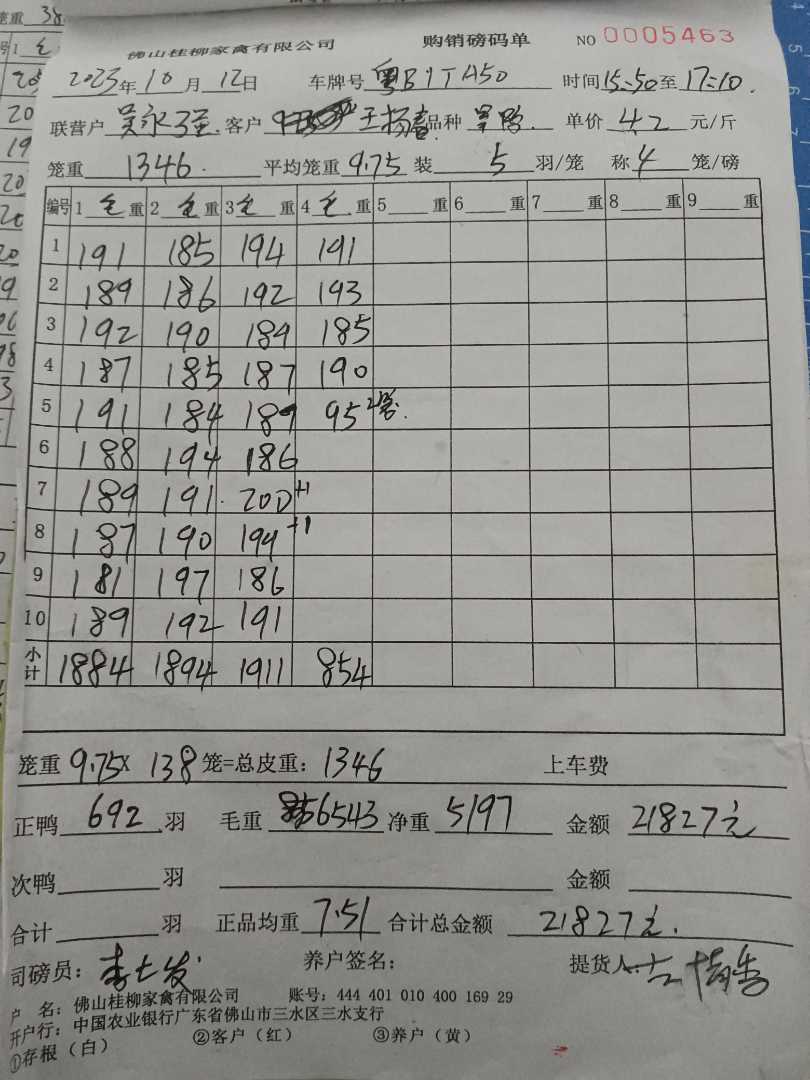 佛山桂柳家禽有限公司 购销磅码单 NO 0005463
2023年10月12日 车牌号 粤B1TA50 时间15:50至17:10.
联营户 吴永强 客户 王扬 品种 单价 4.2 元/斤
笼重 1346. 平均笼重 9.75 装 5 羽/笼 称 4 笼/磅
编号 1 毛 重 2 毛 重 3 毛 重 4 毛 重 5 重 6 重 7 重 8 重 9 重
1 191 185 194 191
2 189 186 192 193
3 192 190 189 185
4 187 185 187 190
5 191 184 189 95 2笼.
6 188 194 186
7 189 191 200 +1
8 187 190 194 +1
9 181 197 186
10 189 192 191
小计 1884 1894 1911 854
笼重 9.75 X 138 笼=总皮重: 1346 上车费
正鸭 692 羽 毛重 6543 净重 5197 金额 21827元
次鸭 羽 金额
合计 羽 正品均重 7.51 合计总金额 21827元.
司磅员: 李七发 养户签名: 提货人:
户 名: 佛山桂柳家禽有限公司 账号: 444 401 010 400 169 29
开户行: 中国农业银行广东省佛山市三水区三水支行
①存根(白) ②客户(红) ③养户(黄)